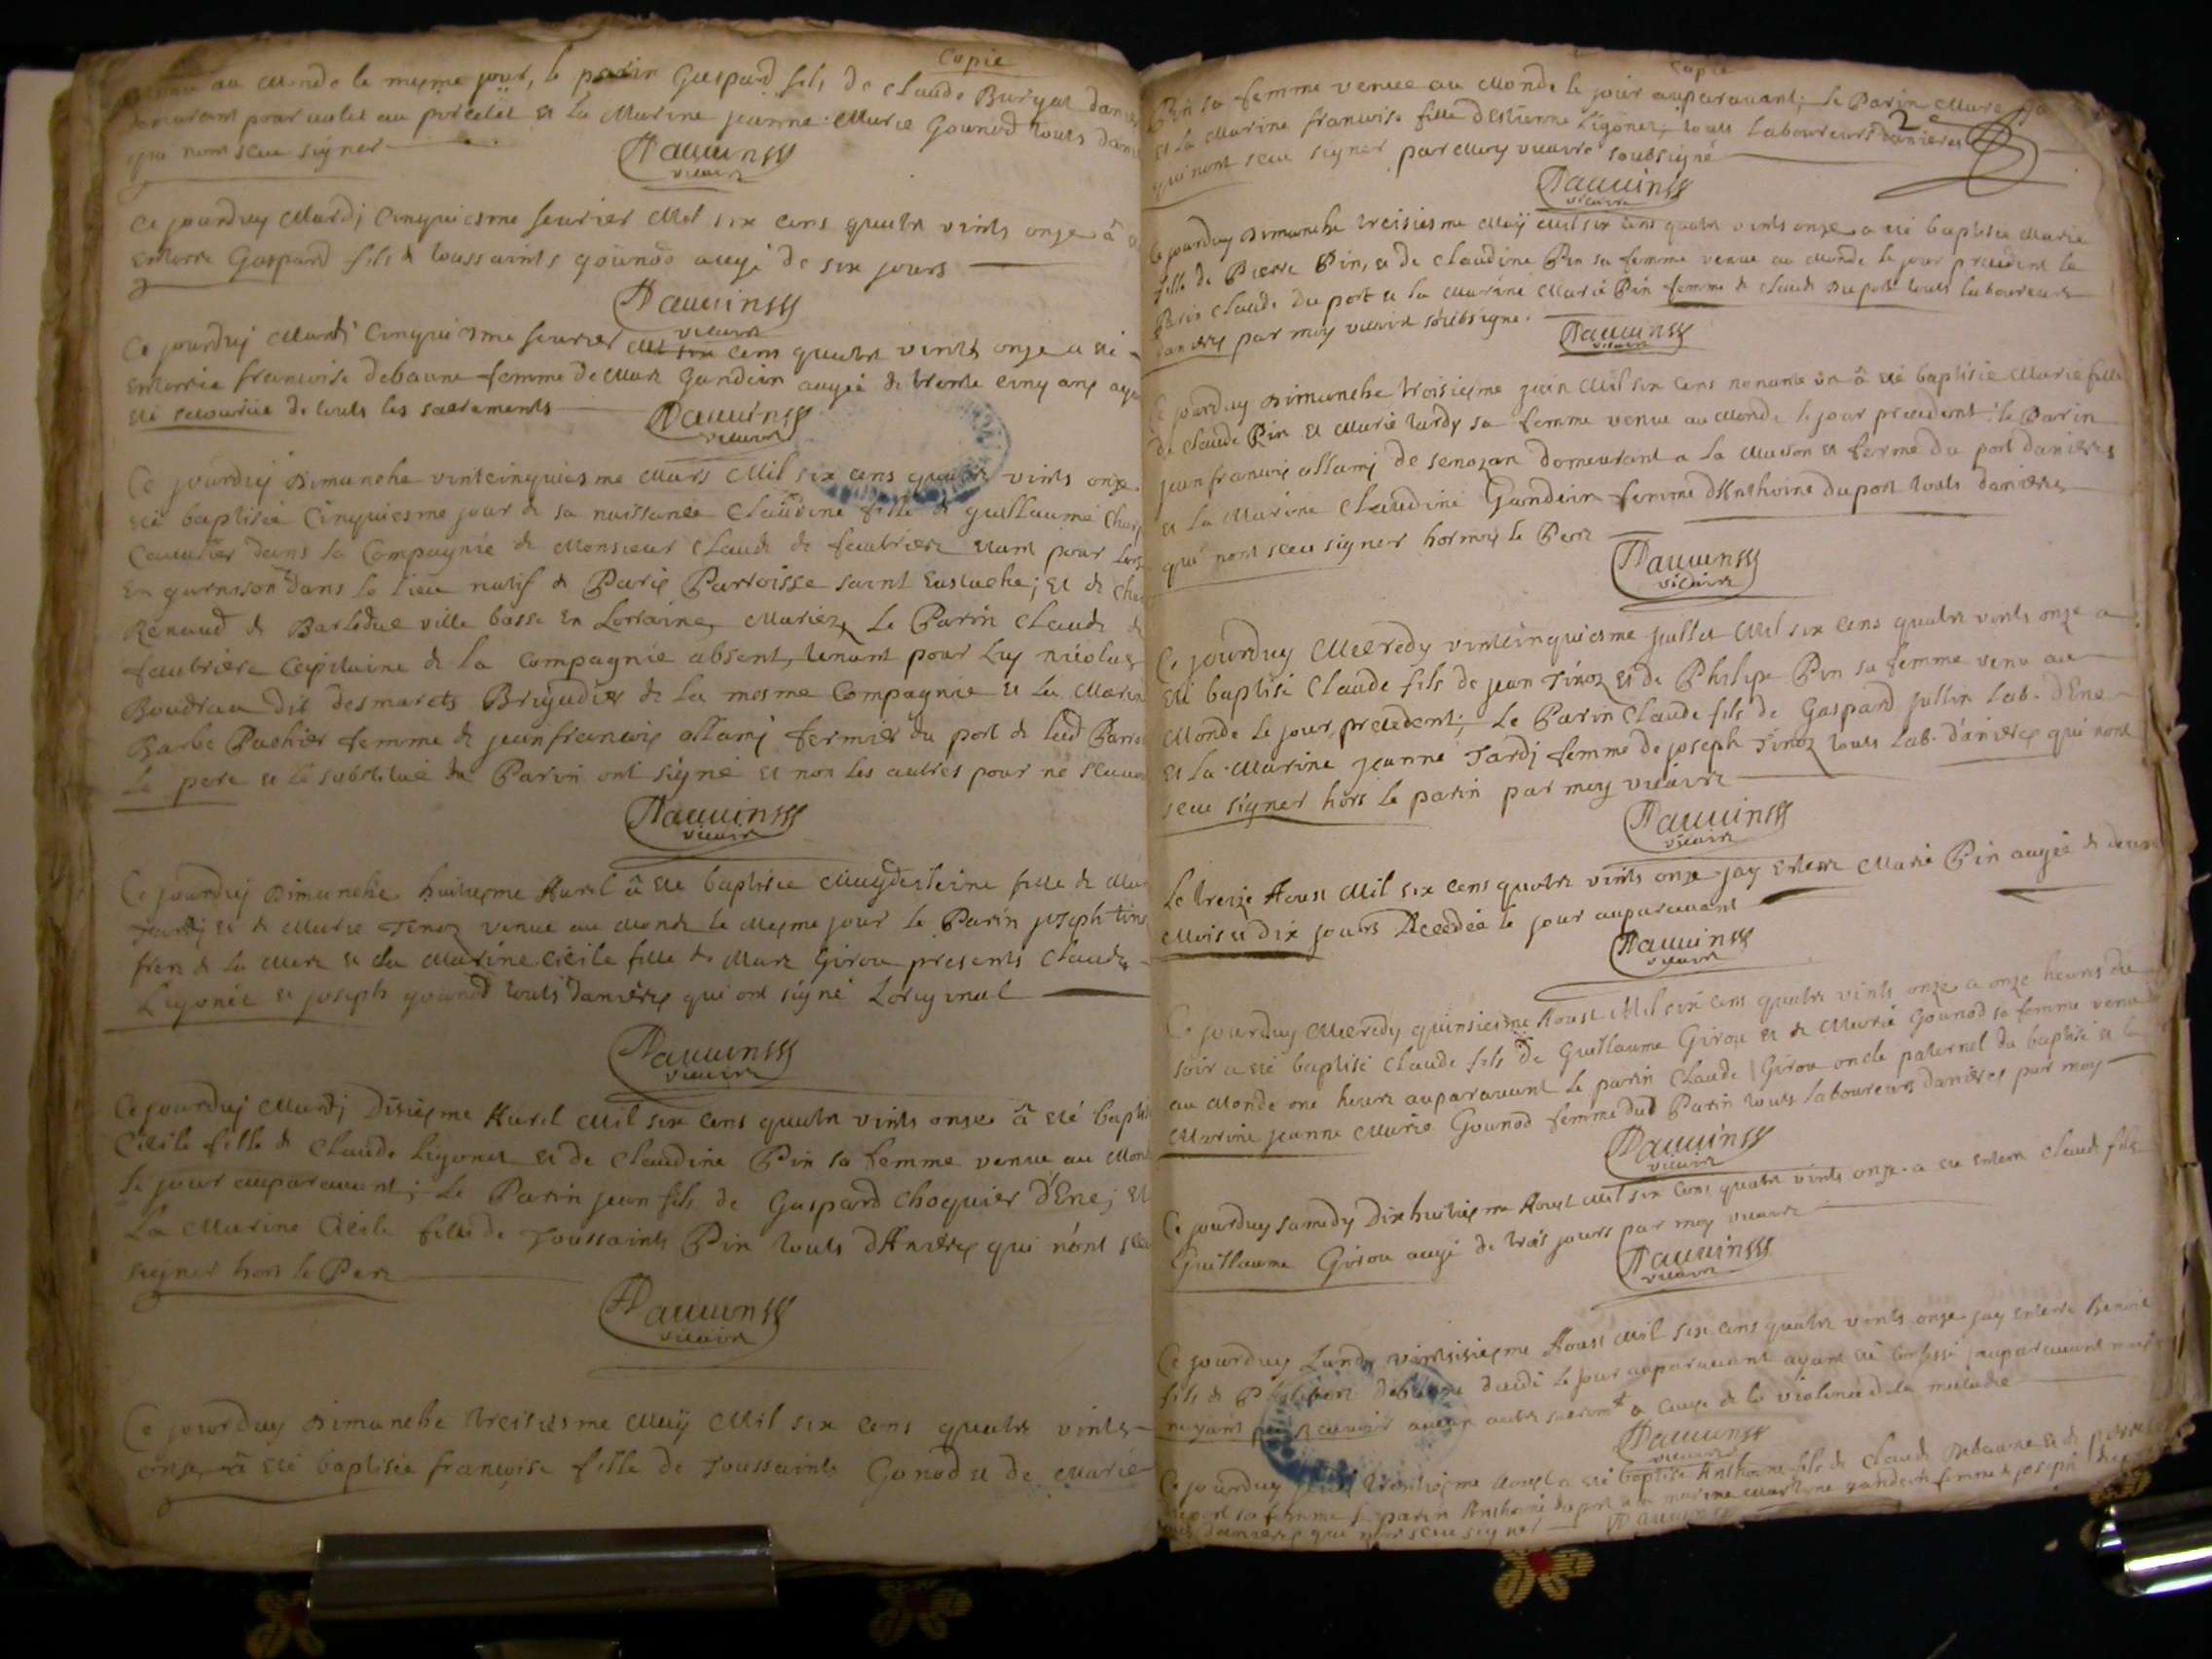 Copie
au monde le mesme jour, le parin Gaspard fils de claude Buryat
demeurant pour valet au port et la Marine jeanne Marie Gounod touts
qui nont sceu signer
vicaire
Ce jourduy Mardi Cinquiesme feurier Mil six cens quatre vints onze â
enterre Gaspard fils de toussaints gounod augé de six jours
vicaire
Ce jourduj Mardi Cinquiesme feurier Mil six cens quatre vints onze a été
enterrée francoise debaune femme de Marc Gandein augée de trente cinq ans
été secourüe de touts les sacrements
vicaire
Ce jourduij Dimanche vintcinquiesme Mars Mil six cens quatre vints onze
été baptisée Cinquiesme jour de sa naissance Claudine fille de guillaume
Caualier dans la Compagnie de Monsieur Claude de faubriere
en garnison dans le lieu natif de Paris Parroisse saint Eustache; et de
Renaud de Barleduc ville basse en Lorraine, Mariez, Le Parin Claude de
faubriere Capitaine de la Compagnie absent, tenant pour Luy nicolas
Boudrau dit desmarets Brigadier de la mesme Compagnie et La Marin
Barbe Pachier femme de jeanfrancois allamj fermier du port de
Le pere et le substitué du Parin ont signé et non les autres pour ne
vicaire
Ce jourduj Dimanche huitiesme Auril â été baptisée Magdeleine fille de
Tardj et de Marie Tinoz venue au Monde le Mesme jour le Parin joseph
frere de la Mere et la Marine Cicile fille de Marc Girou presents Claude
Ligonét et joseph gounod touts daniéres qui ont signé Loriginal
vicaire
Ce jourduj Mardj Disiesme Auril Mil six cens quatre vints onze â été
Cicile fille de Claude Ligonet et de Claudine Pin sa femme venue au
le jour auparauant; Le Parin jean fils de Gaspard Choquier d'Ene; et
La Marine Cicile fille de Toussaints Pin touts dAnieres qui n'ont
signer hors le Pere
vicaire
Ce jourduy Dimanche treisiesme Maÿ Mil six cens quatre vints
onze â été baptisée françoise fille de Toussaints Gonod et de Marie
Copie
Pin sa femme venue au Monde le jour auparauant; le Parin Marc
et la Marine francoise fille destienne Ligonet, touts Laboureurs danieres
2
qui nont sceu signer par Moy vicaire soubsigné
vicaire
Ce jourduy Dimanche treisiesme Maÿ Mil six cens quatre vints onze a été baptisée Marie
fille de Pierre Pin, et de Claudine Pin sa femme venue au Monde le jour precedent le
Parin Claude Du port et la Marine Marie Pin femme de Claude Du port touts laboureurs
danieres par moy vicaire soubsigne.
vicaire
Ce jourduy Dimanche troisiesme juin Mil six cens nonante un â été baptisée Marie fille
de Claude Pin et Marie tardy sa femme venue au Monde le jour precedent le Parin
jean francois allamj de senozan demeurant a la Maison et ferme du port danieres
et la Marine Claudine Gandein femme dAnthoine duport touts danieres
qui nont sceu signer hormis le Pere
vicaire
Ce jourduy Mecredy vintcinquiesme juillet Mil six cens quatre vints onze a
été baptisé Claude fils de jean Tinoz et de Philipe Pin sa femme venu au
Monde le jour precedent; Le Parin Claude fils de Gaspard jullin Lab. dEne
et La Marine jeanne Tardj femme de joseph Tinoz touts Lab. danieres qui nont
sceu signer hors le parin par moy vicaire
vicaire
Le treize Aoust Mil six cens quatre vints onze jay enterre Marie Pin augée de deux
Mois et dix jours decedée le jour auparauant
vicaire
Ce jourduy Mecredy quinsiesme Aoust Mil six cens quatre vints onze a onze heures du
soir a été baptisé Claude fils de Guillaume Girou et de Marie Gounod sa femme venu
au Monde une heure auparauant le parin Claude Girou oncle paternel du baptisé et la
Marine jeanne Marie Gounod femme dud Parin touts laboureurs danieres par moy
vicaire
Ce jourduy samedy Dix huitiesme Aoust Mil six cens quatre vints onze a été enterre Claude fils
Guillaume Girou augé de trois jours par moy vicaire
vicaire
Ce jourduy Lundy vintsisiesme Aoust Mil six cens quatre vints onze jay enterre Benoit
fils de debaune decedé le jour auparauant ayant été confessé auparauant
nayant peu receuoir aucun autre sacremt a cause de la violence de la maladie
vicaire
Ce jourduy trentiesme Aoust a été baptisé Anthoine fils de Claude Debaune et de
duport sa femme le parin Anthoine du port et la marine gandein femme de joseph
touts danieres qui nont sceu signer